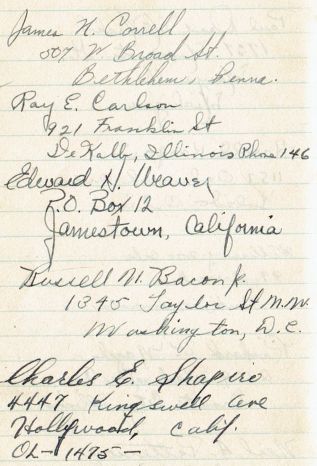 James H. Correll
507 W. Broad St.
Bethlehem, Penna.
Ray E. Carlson
921 Franklin St
DeKalb, Illinois Phone 146
Edward H. Weaver
P.O. Box 12
Jamestown, California
Russell N. Bacon Jr.
1345 Taylor St N.W.
Washington, D.C.
Charles E. Shapiro
4447 Kingswell Ave
Hollywood, Calif.
OL-1475-